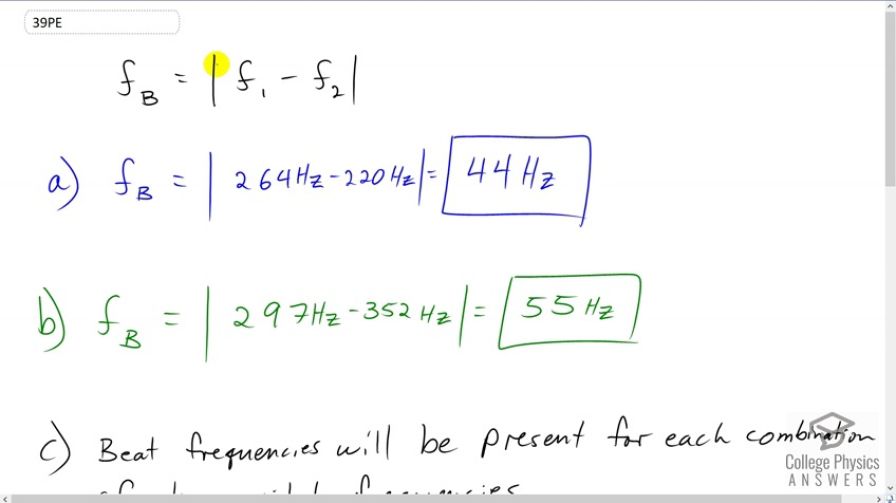 39PE
f_B = | f_1 - f_2 |
a) f_B = | 264 Hz - 220 Hz | = 44 Hz
b) f_B = | 297 Hz - 352 Hz | = 55 Hz
c) Beat frequencies will be present for each combination
frequencies
College Physics
ANSWERS